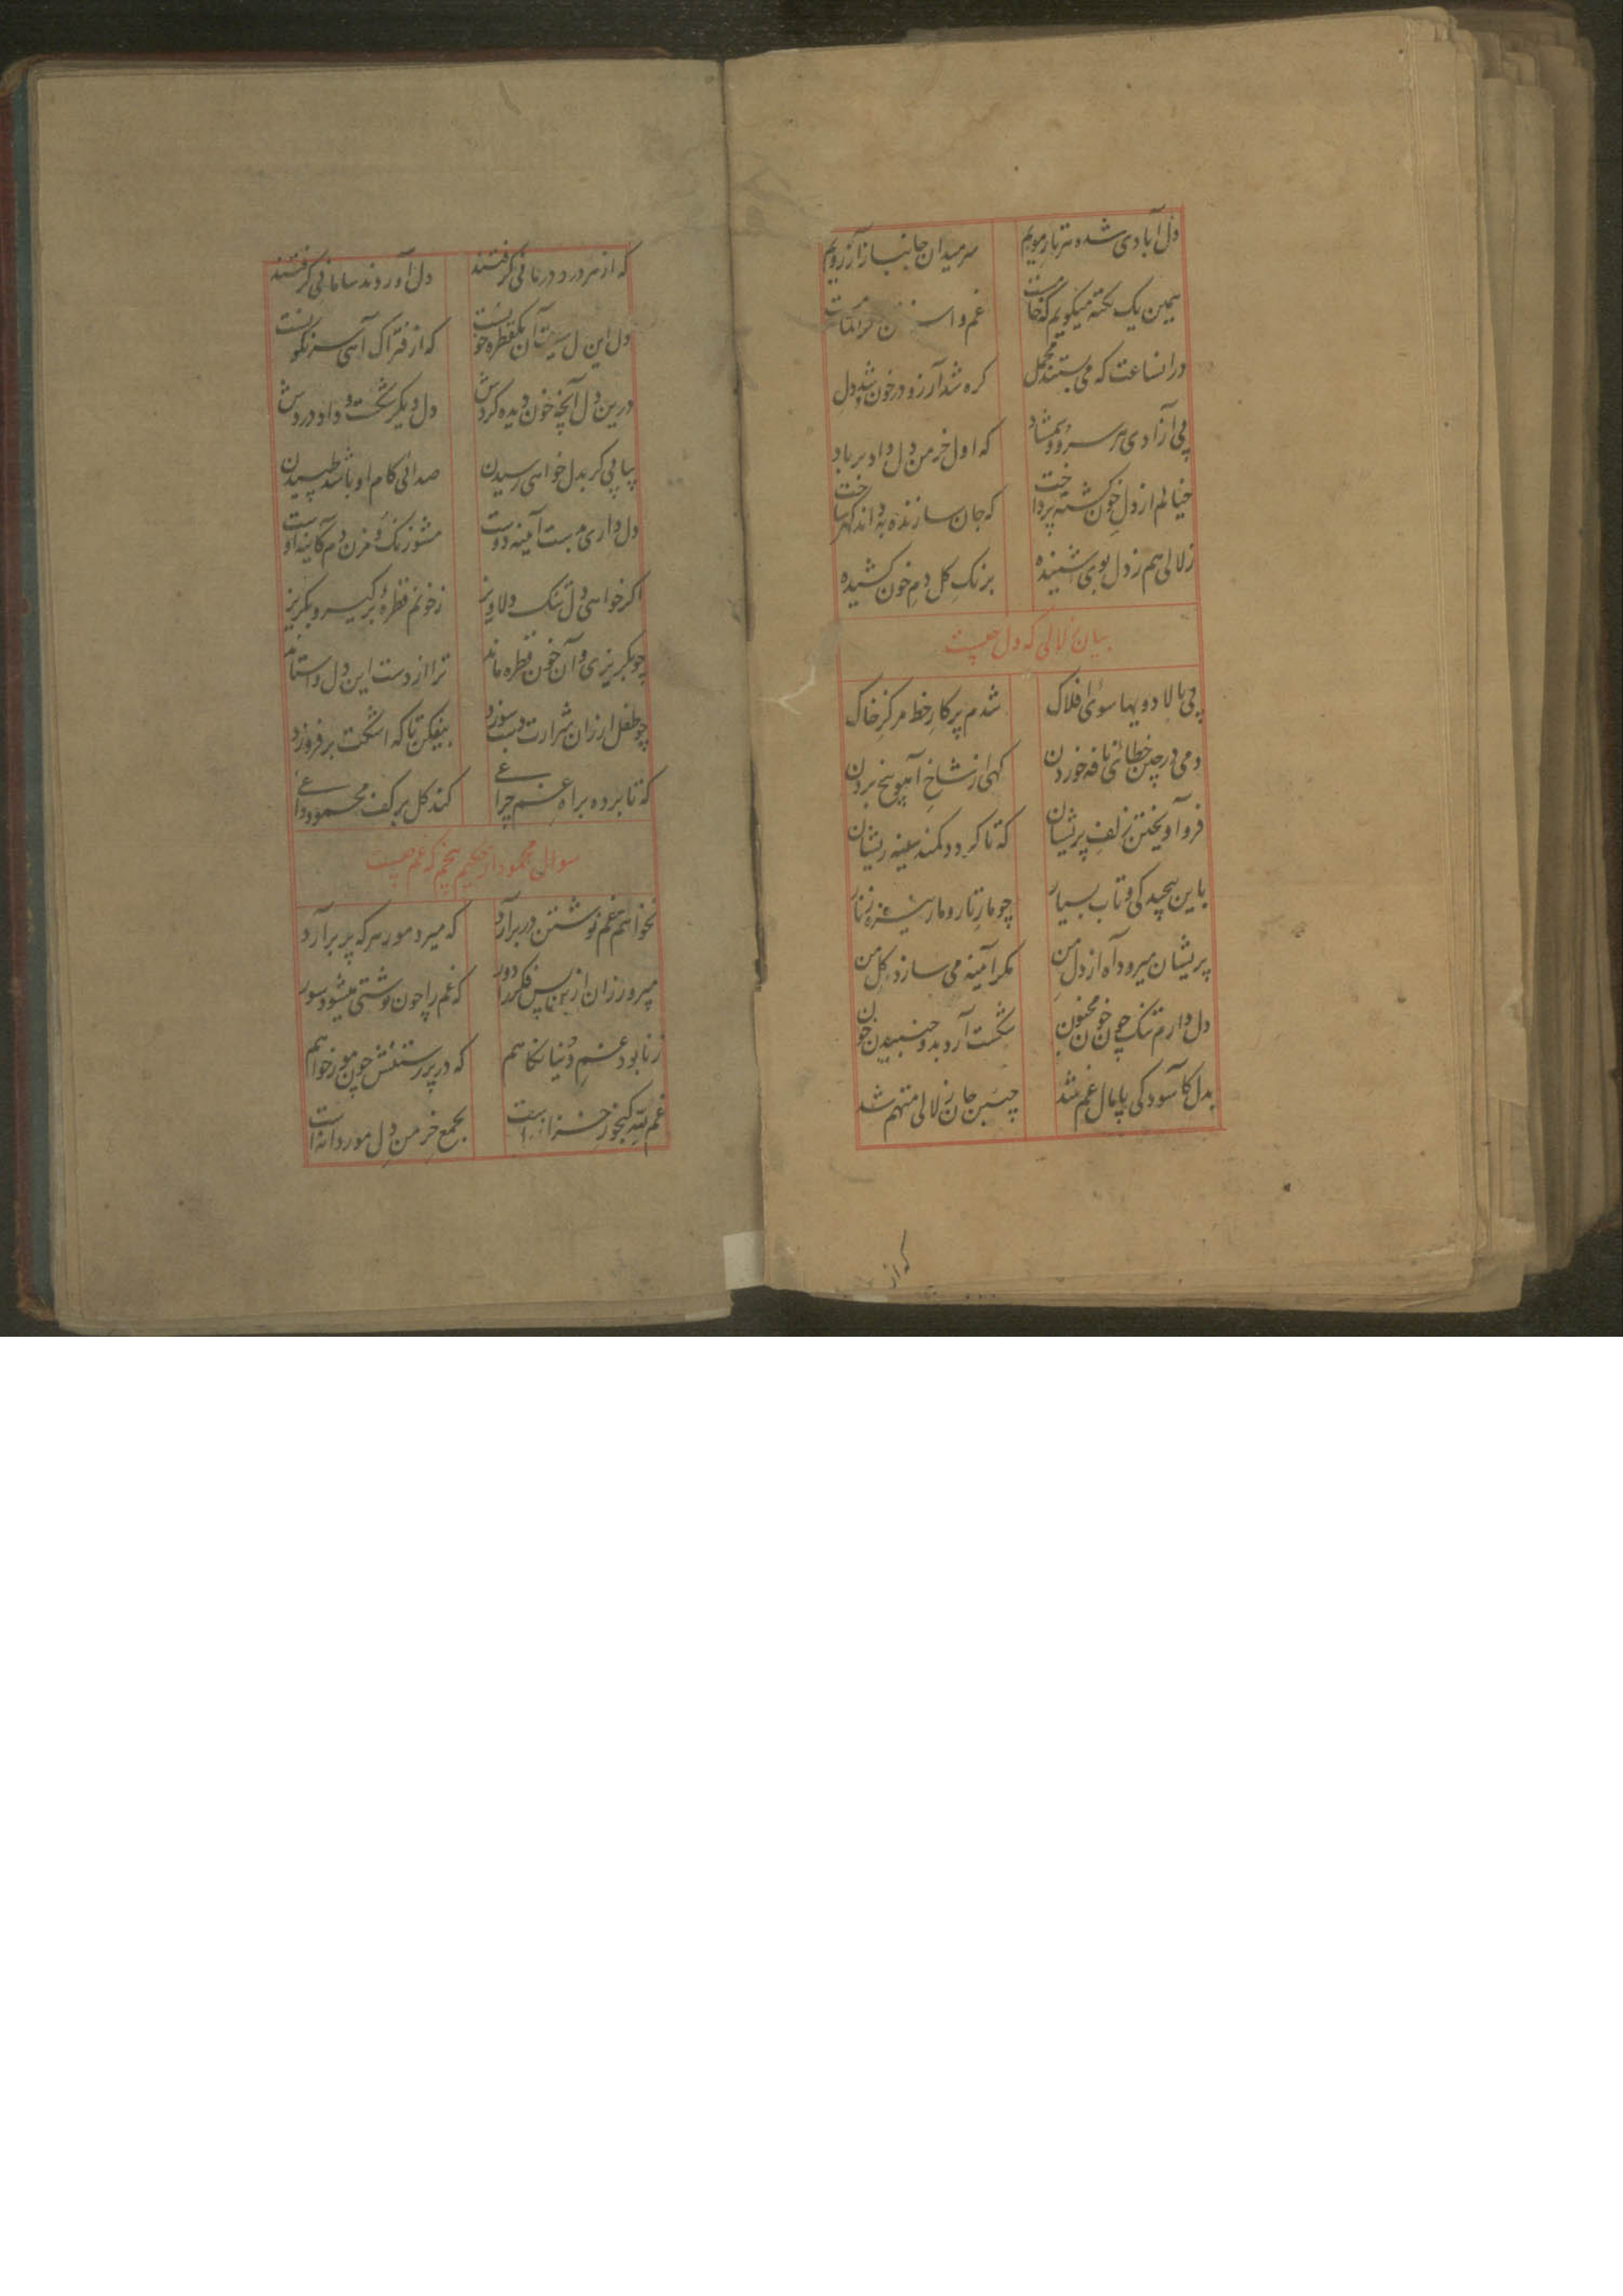 دل آبادی شده هر تار مویم سر میدان جانباز آرزویم
همین یک نکته میکویم که خامست غم و
در انساعت که می بستند محمل کره شد آرزو در خون شد و دل
پی آزادی هر سرو و شمشاد که اول خرمن دل داد بر باد
خیالم از دل خون کشته پرداخت که جان سازنده به داند
زلالی هم ز دل بوی شنیده برنک کل دم خون کشیده
بیان زلالی که دل چیست
پی بالا دویها سوی افلاک شدم پرکار خط مرکز خاک
دمی در چین خطائی نافه خوردن کهی از شاخ آهو بیخ بردن
فرو آویختن زلف پریشان که تا کردد کمند سینه ریشان
باین پیچیدکی و تاب بسیار چو مار تار و مار زنار
پریشان میرود آه از دل من مکر آئینه می سازد کل من
دل دارم تنک چون خون مجنون شکست آرد بدو جنبیدن خون
بدل کاسودکی پامال غم شد چنین جان زلالی متهم شد
که از
که از هر درد درمانی کرفتند دل آوردند سامانی کرفتند
دل این دل نیست آن یکقطره خونست که از فتراک آهی سرنکونست
درین دل آنچه خون دیده کردش دل دیکر شکست و داد دردش
پیاپی کر بدل خواهی رسیدن صدائی کام او باشد طپیدن
دل داری مبست آئینه دوست مشو زنک و مزن دم کاینه اوست
اکر خواهی دل تنک دلاویز ز خونم قطرهٔ برکیر و بکریز
چو بکریزی و آن خون قطره ماند ترا از دست این دل واستاند
چو طفل ارزان شرارت دست سوزد بیفکن تا که اشکت بر فروزد
که تا برده براه غم چراغی کند کل بر کف محمود داغی
سوال محمود از حکیم پنجم که غم چیست
نخواهم غم نوشتن در برآرد که میرد مور هر که پر برآرد
میر و رزان ازین پس فکر دور که غم را چون نوشتی میشود سور
ز نابود غم دنیا نکاهم که در پرستنش چون مور خواهم
غم کنجور خزانه است بجمع خرمن دل مور دانه است